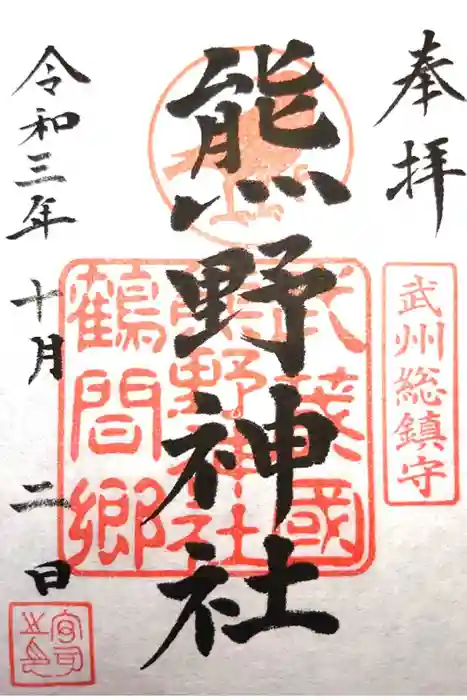 奉拝
武州総鎮守
熊野神社
武蔵國
熊野神社
鶴間郷
令和三年 十月 二日